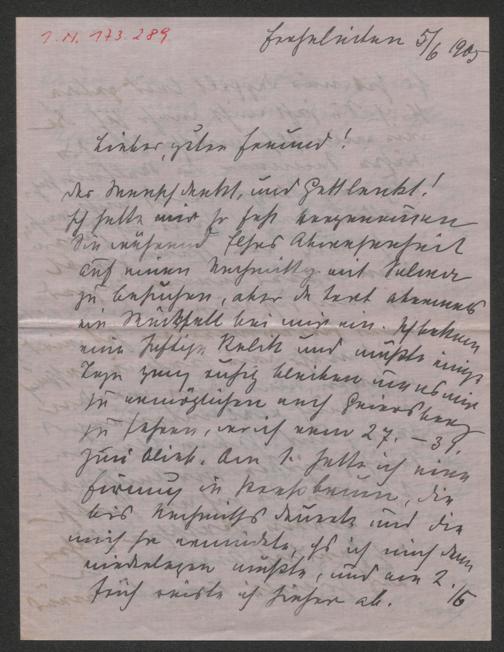 I.N. 173.289
Frohnleiten 5/6 1905
Lieber, guter Freund!
Der Mensch denkt, und Gott lenkt!
Ich hatte mir so fest vorgenommen
Sie während Ihrer Anwesenheit
auf einen Nachmittag mit
zu besuchen, aber da trat abermals
ein Rückfall bei mir ein. Ich bekam
eine heftige Kolik und mußte einige
Tage ganz ruhig bleiben um es mir
zu ermöglichen nach
zu fahren, wo ich vom 27. – 31.
blieb. Am 1. hatte ich eine
Firmung in, die
bis Nachmittags dauerte und die
mich so ermüdete, daß ich mich dann
niederlegen mußte, und am 2./6
früh reiste ich hieher ab.